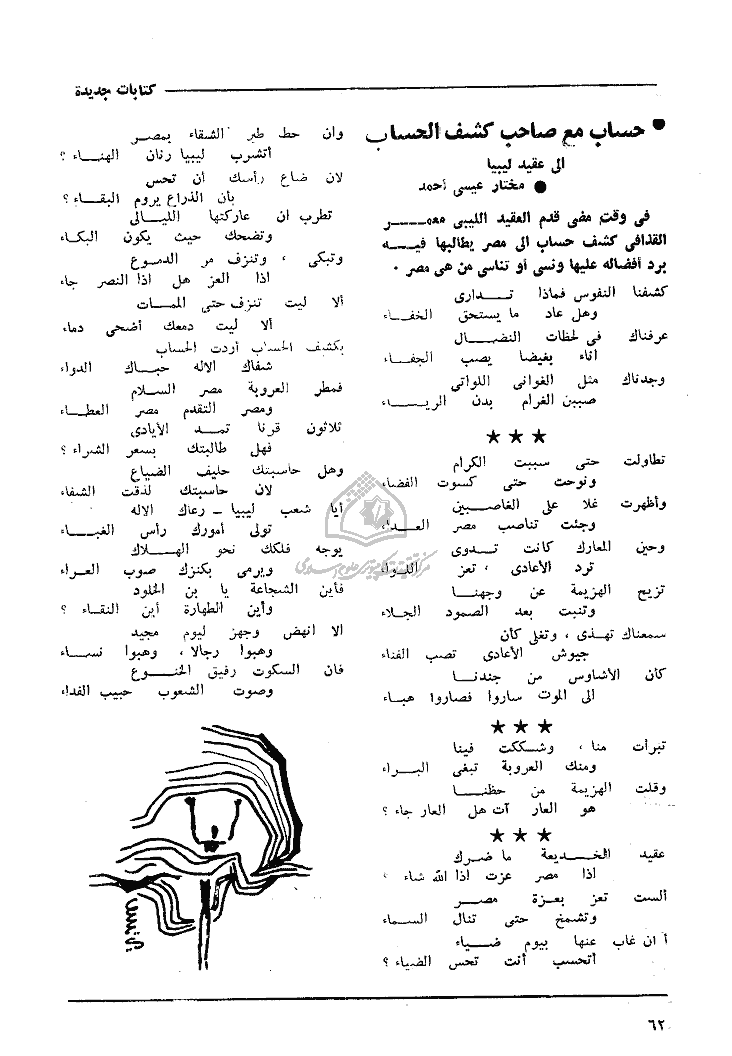 كتابات جديدة
● حساب مع صاحب كشف الحساب
الى عقيد ليبيا
● مختار عيسى أحمد
فى وقت مضى قدم العقيد الليبى معمر
القذافى كشف حساب الى مصر يطالبها فيه
برد أفضاله عليها ونسى أو تناسى من هى مصر ٠
كشفنا النفوس فماذا تدارى
وهل عاد ما يستحق الخفاء
عرفناك فى لحظات النضال
اناء بغيضا يصب الجفاء
وجدناك مثل الغوانى اللواتى
صببن الغرام بدن الرياء
★★★
تطاولت حتى سببت الكرام
ونوحت حتى كسوت الفضاء
وأظهرت غلا على الغاصبين
وجئت تناصب مصر العداء
وحين المعارك كانت تدوى
ترد الأعادى ، تعز اللواء
تزيح الهزيمة عن وجهنا
وتنبت بعد الصمود الجلاء
سمعناك تهذى ، وتغلى كان
جيوش الأعادى تصب الفناء
كأن الأشاوس من جندنا
الى الموت ساروا فصاروا هباء
★★★
تبرأت منا ، وشككت فينا
ومنك العروبة تبغى البراء
وقلت الهزيمة من حظنا
هو العار آت هل العار جاء ؟
★★★
عقيد الخديعة ما ضرك
اذا مصر عزت اذا الله شاء ؟
ألست تعز بعزة مصر
وتشمخ حتى تنال السماء
أ ان غاب عنها بيوم ضياء
أتحسب أنت تحس الضياء ؟
وان حط طير الشقاء بمصر
أتشرب ليبيا رنان الهناء ؟
لان ضاع رأسك أن تحس
بأن الذراع يروم البقاء ؟
تطرب ان عاركتها الليالى
وتضحك حيث يكون البكاء
وتبكى ، وتنزف مر الدموع
اذا العز هل اذا النصر جاء
ألا ليت تنزف حتى الممات
ألا ليت دمعك أضحى دماء
بكشف الحساب أردت الحساب
شفاك الاله حباك الدواء
فمطر العروبة مصر السلام
ومصر التقدم مصر العطاء
ثلاثون قرنا تمد الأيادى
فهل طالبتك بسعر الشراء ؟
وهل حاسبتك حليف الضياع
لان حاسبتك لذقت الشقاء
أيا شعب ليبيا ــ رعاك الاله
تولى أمورك رأس الغباء
يوجه فلكك نحو الهلاك
ويرمى بكنزك صوب العراء
فأين الشجاعة يا بن الخلود
وأين الطهارة أين النقاء ؟
الا انهض وجهز ليوم مجيد
وهبوا رجالا ، وهبوا نساء
فان السكوت رفيق الخنوع
وصوت الشعوب حبيب الفداء
٦٢